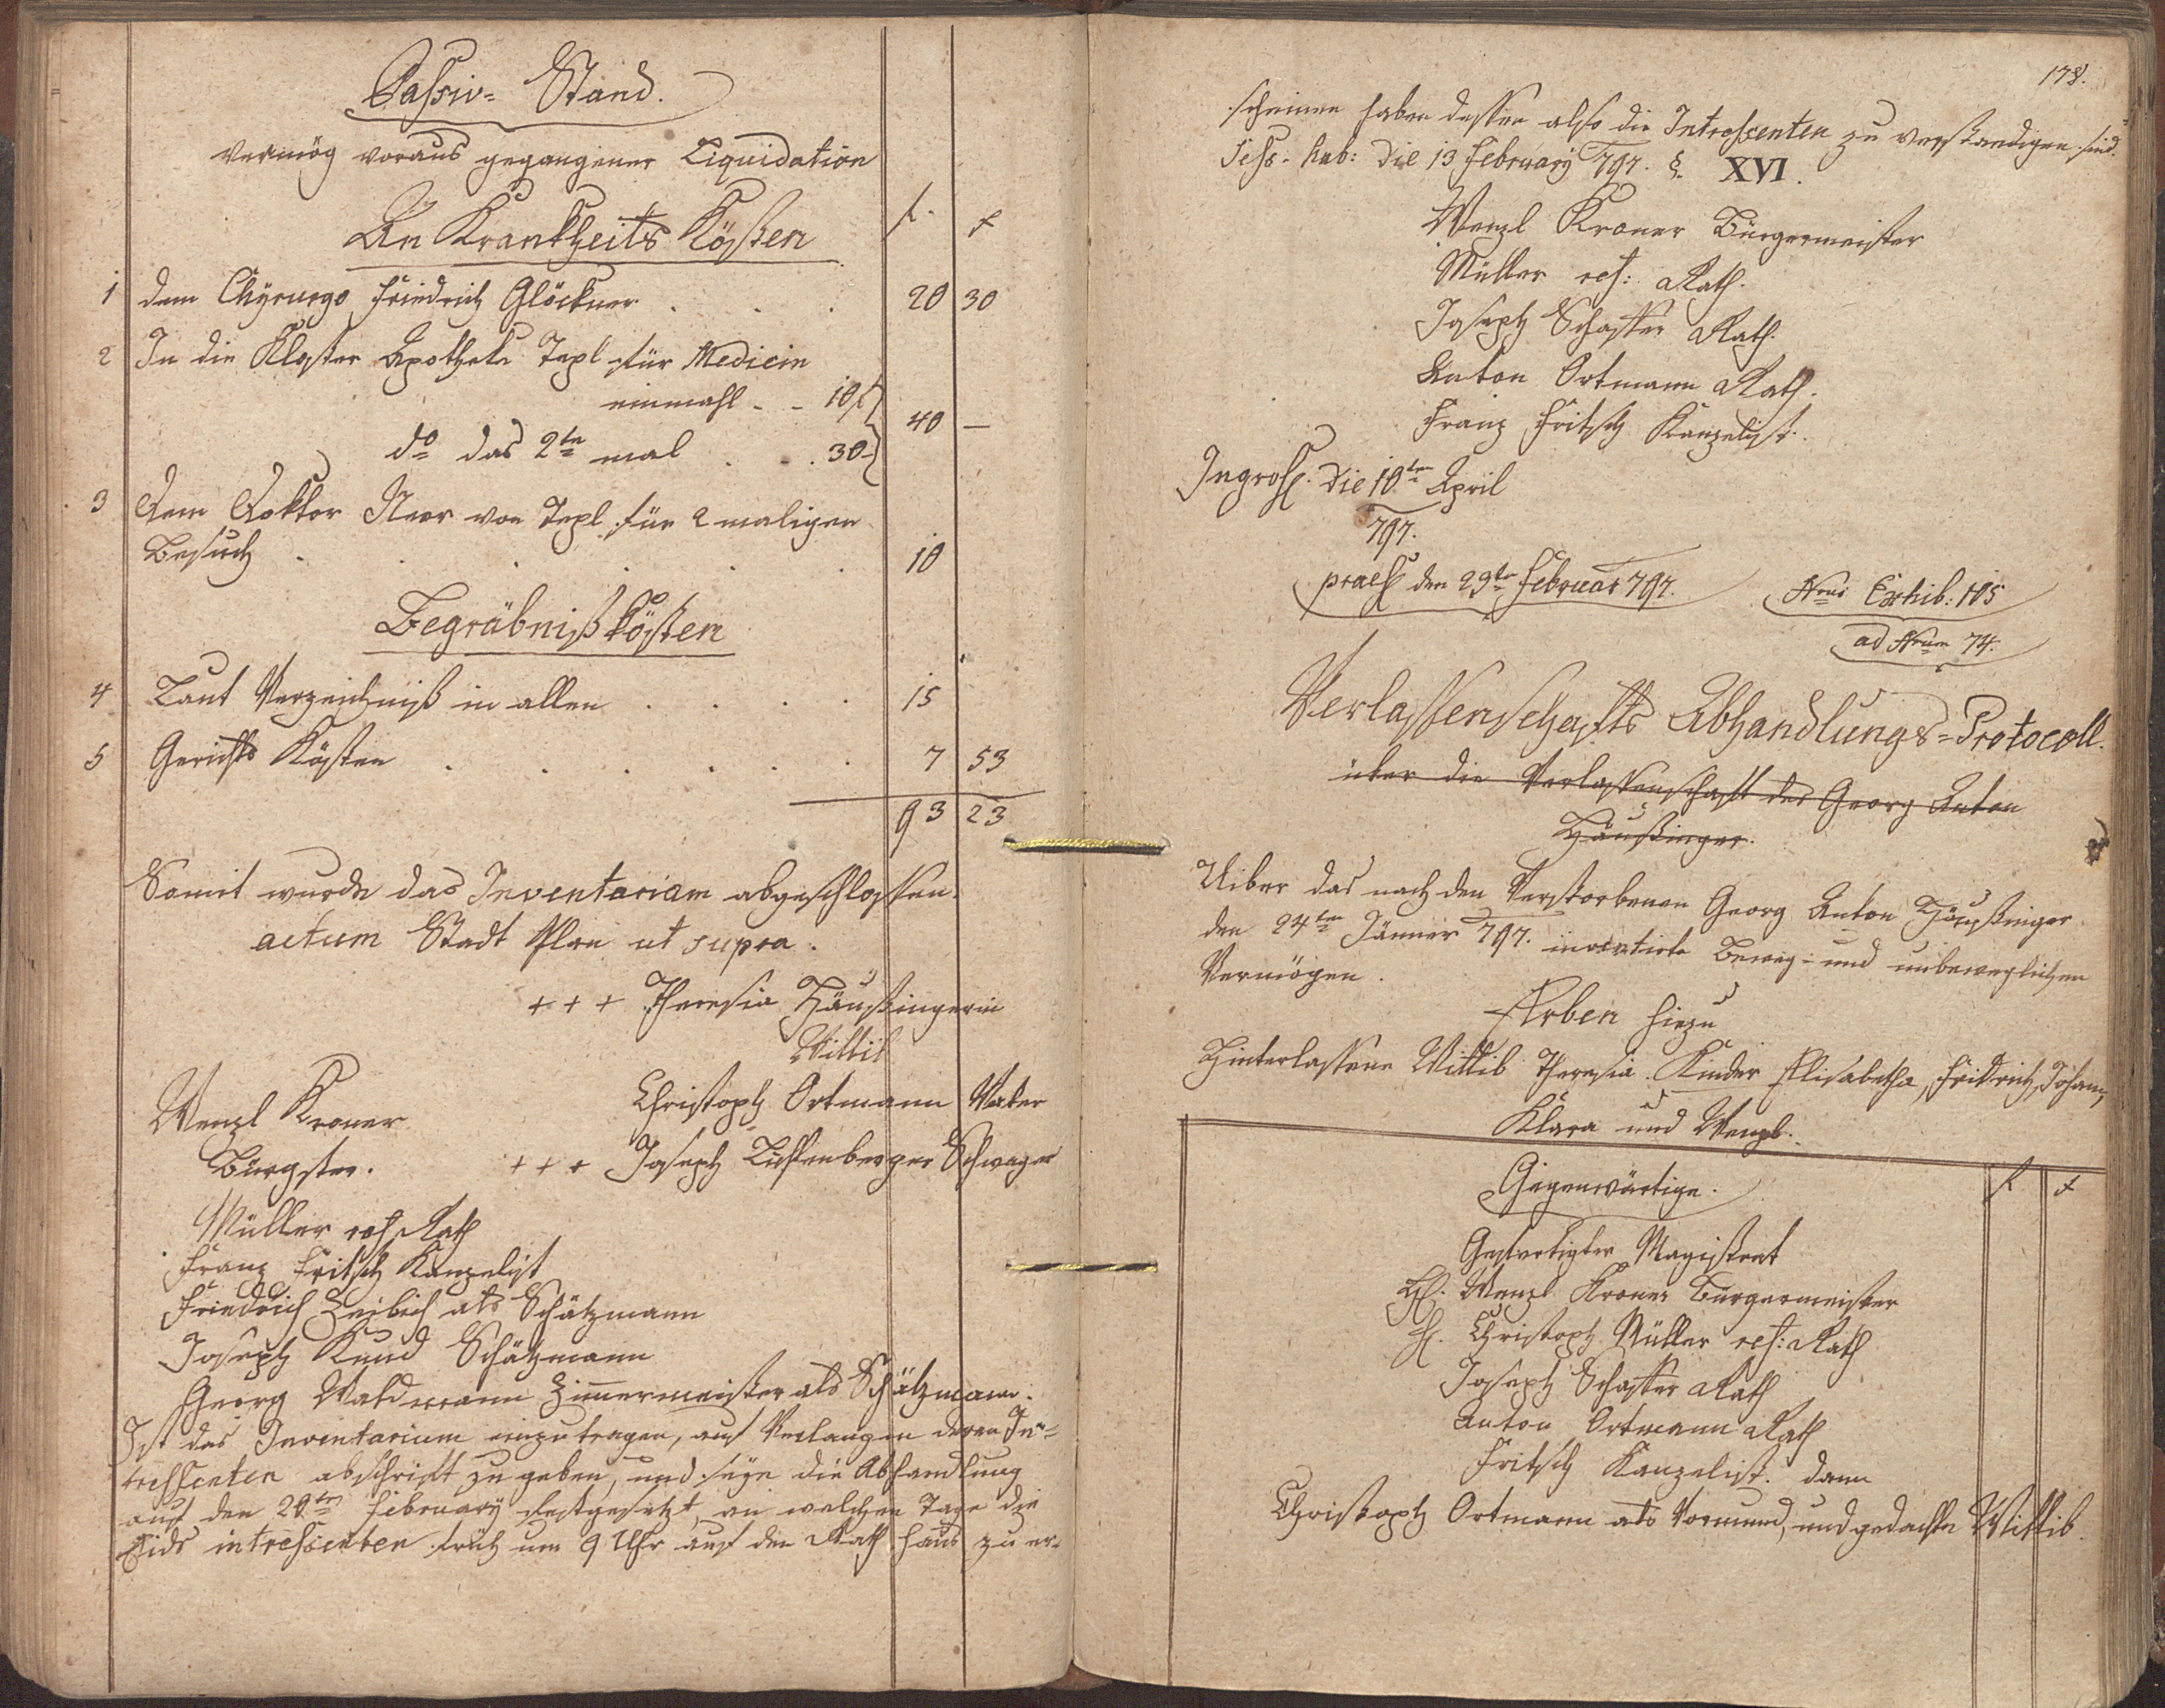 Passiv- Stand.
vermög voraus gegangener Liquidation
An Krankheits Kösten
f. x
1 dem Chyrurgo Friedrich Glöckner . . . 20 30
2 In die Kloster Apotheke Tepl für Medicin
einmahl - - 10 f
40 —
do das 2te mal . . 30 -
3 Dem Doktor von Tepl für 2 maligen
Besuch . . . . . 10
Begräbniß kösten
4 Laut Verzeichniß in allen . . . . 15
5 Gerichts Kösten . . . . . . 7 53
93 23
Somit wurde das Inventarium abgeschlossen.
actum Stadt Plan ut supra.
+ + + Theresia Häußingerin
Wittib
Christoph Ortmann Vater
Wenzl Kroner
Bürgstr.
+ + + Joseph Lichtenberger Schwager
Müller res Rath
Franz Fritsch Kanzelist
Friedrich Zeidlich als Schätzmann
Joseph Kund Schätzmann
Georg Waldmann Zimmermeister als Schätzmann.
Ist das Inventarium einzutragen, auf Verlangen deren In-
tressenten abschrift zu geben, und seye die Abhandlung
auf den 20ten February festgesetzt, an welchen Tage die
intressenten fruh um 9 Uhr auf den Rath haus zu er-
178.
scheinen haben dessen also die Intressenten zu verstandigen sind.
Sess. hab: die 13 February 797. §. XVI.
Wenzl Kroner Bürgermeister
Müller res: Rath.
Joseph Schaffer Rath.
Anton Ortmann Rath.
Franz Fritsch Kanzelist.
Ingross. die 10ten April
797.
praes den 29te Februar 797.
Nrus Exhib: 105
ad Nrum 74.
Verlassenschafts Abhandlungs-Protocoll.
über die Verlassenschaft des Georg Anton
Häußinger.
Uiber das nach den Verstorbenen Georg Anton Häußinger
den 24ten Jänner 797. inventirte Beweg- und unbeweglichen
Vermögen.
Erben hiezu
Hinterlassene Wittib Theresia. Kinder Elisabetha, Fridrich, Johann,
Klara und Wenzl.
Gegenwärtige.
f x
Gefertigter Magistrat
H. Wenzl Kroner Bürgermeister
H. Christoph Müller res: Rath
Joseph Schaffer Rath
Anton Ortmann Rath
Fritsch Kanzelist. dann
Christoph Ortmann als Vormund, und gedachte Wittib.